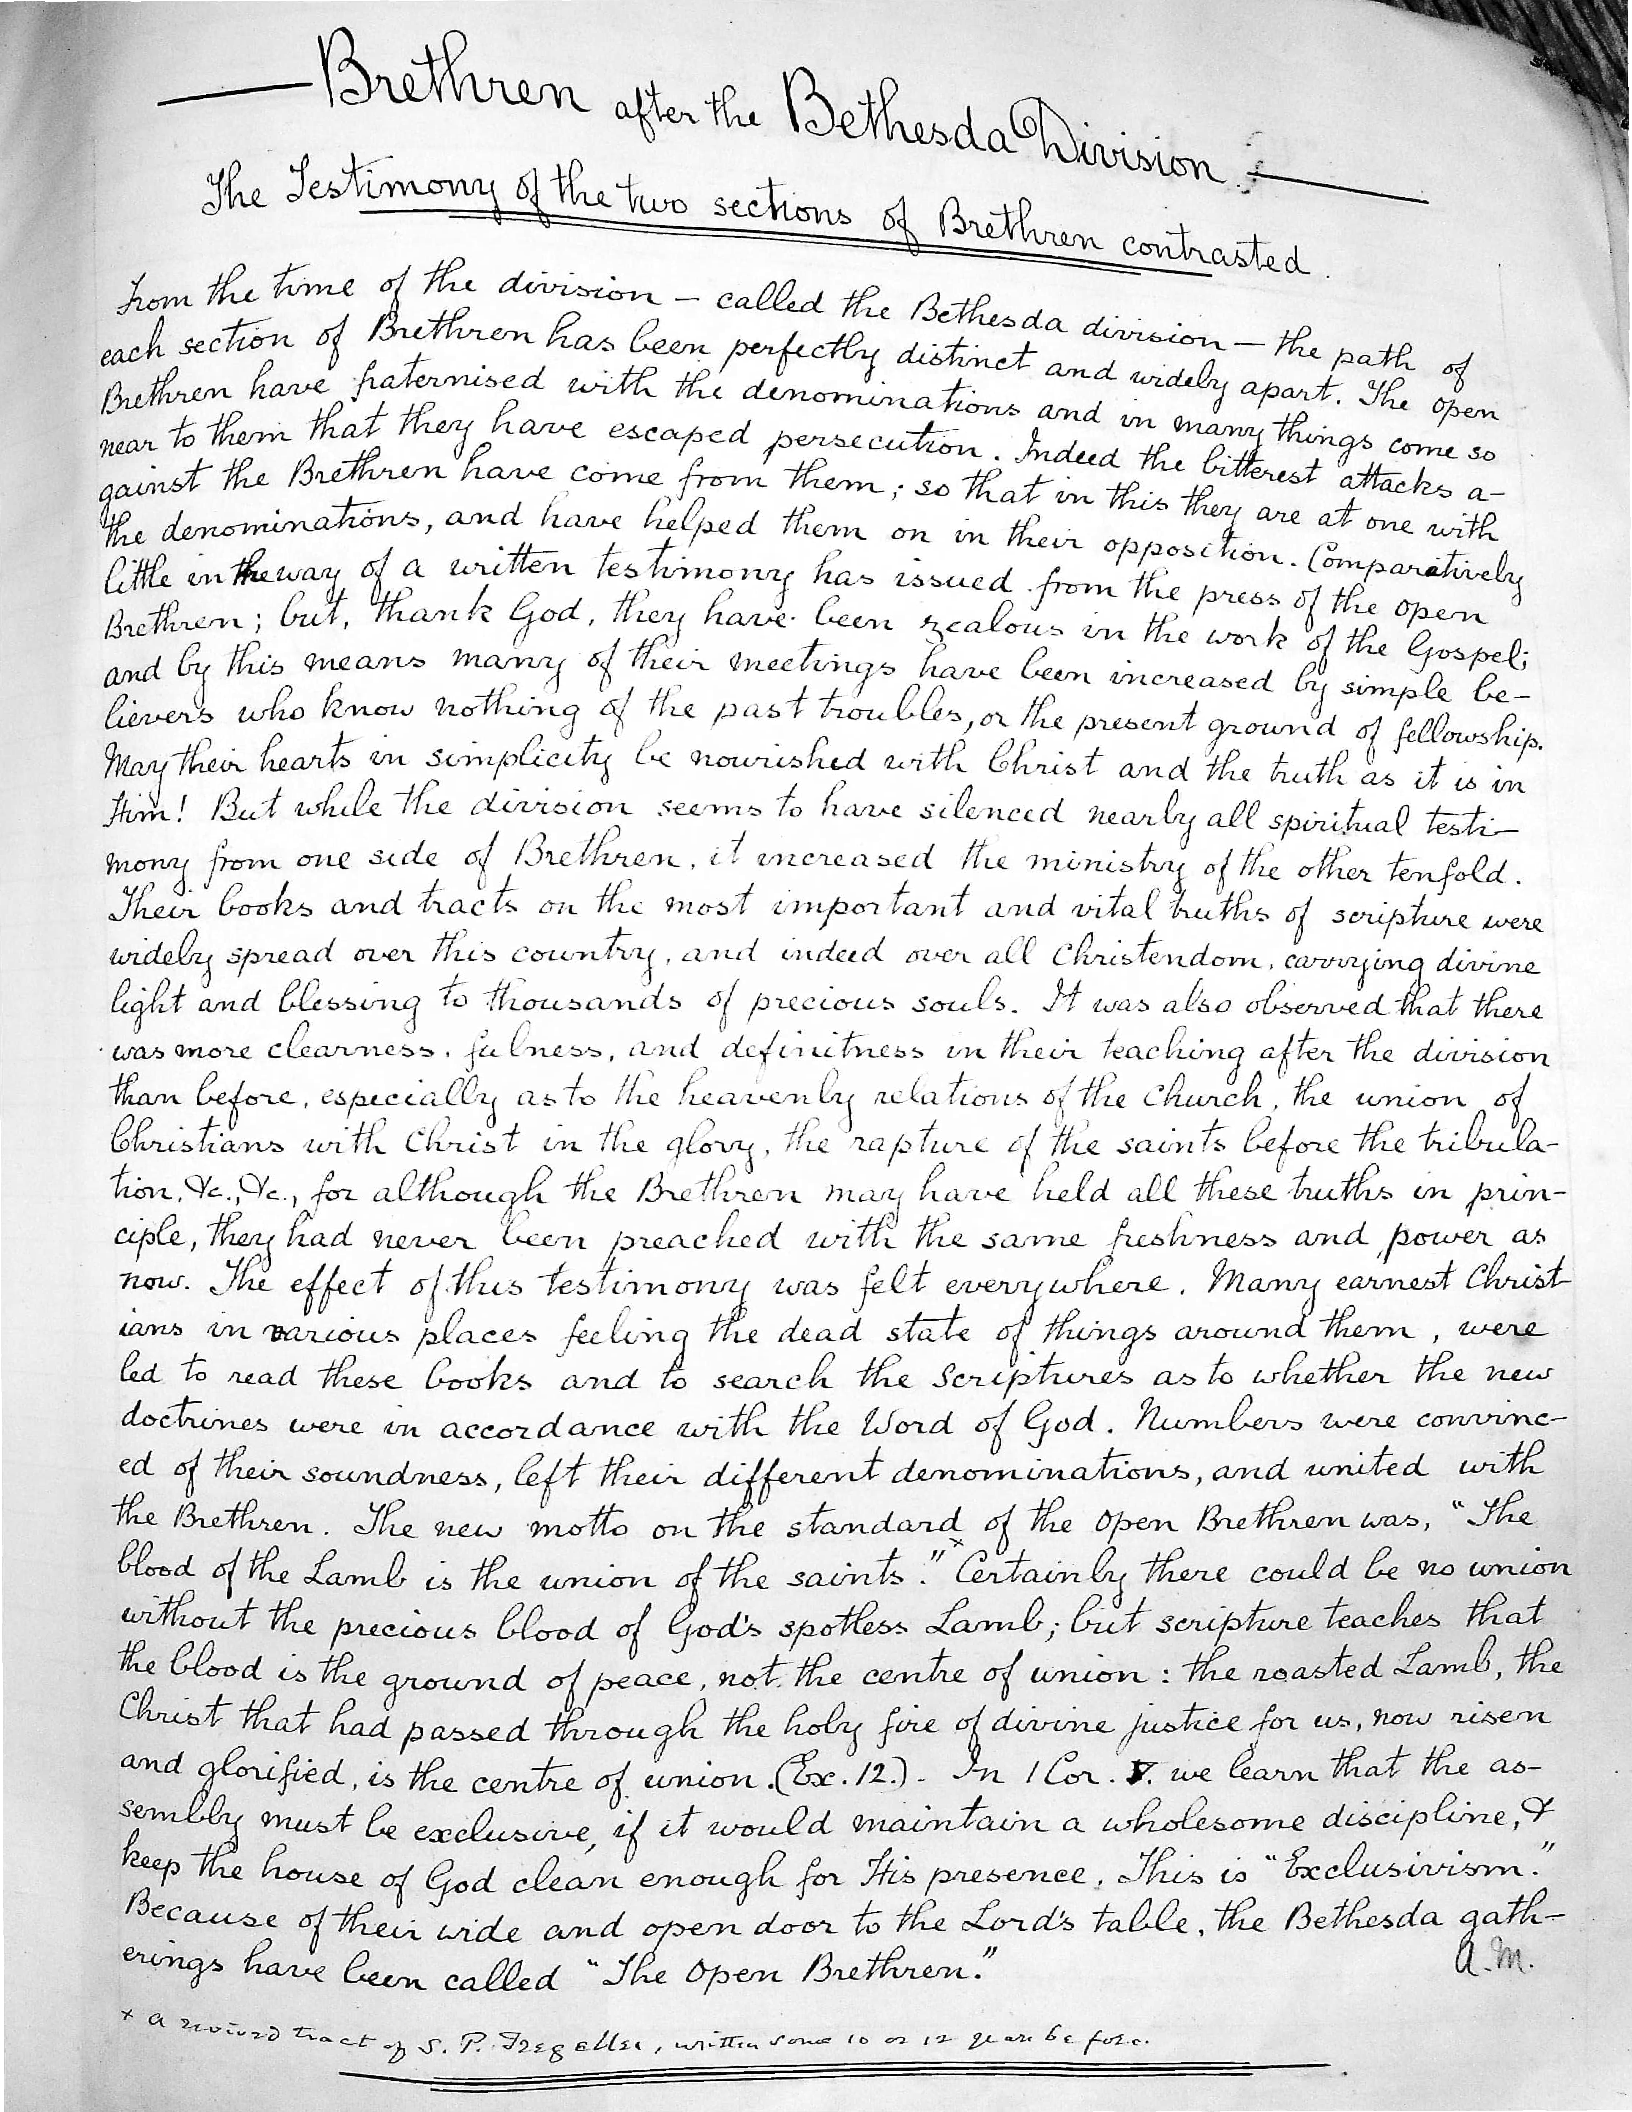 Brethren after the Bethesda Division.
The Testimony of the two sections of Brethren contrasted.
From the time of the division — called the Bethesda division — the path of
each section of Brethren has been perfectly distinct and widely apart. The open
Brethren have fraternised with the denominations and in many things come so
near to them that they have escaped persecution. Indeed the bitterest attacks a-
gainst the Brethren have come from them; so that in this they are at one with
the denominations, and have helped them on in their opposition. Comparatively
little in the way of a written testimony has issued from the press of the open
Brethren; but, thank God, they have been zealous in the work of the Gospel;
and by this means many of their meetings have been increased by simple be-
lievers who know nothing of the past troubles, or the present ground of fellowship.
May their hearts in simplicity be nourished with Christ and the truth as it is in
Him! But while the division seems to have silenced nearly all spiritual testi-
mony from one side of Brethren, it increased the ministry of the other tenfold.
Their books and tracts on the most important and vital truths of scripture were
widely spread over this country, and indeed over all Christendom, carrying divine
light and blessing to thousands of precious souls. It was also observed that there
was more clearness, fulness, and definitness in their teaching after the division
than before, especially as to the heavenly relations of the Church, the union of
Christians with Christ in the glory, the rapture of the saints before the tribula-
tion, &c., &c., for although the Brethren may have held all these truths in prin-
ciple, they had never been preached with the same freshness and power as
now. The effect of this testimony was felt everywhere. Many earnest Christ-
ians in various places feeling the dead state of things around them, were
led to read these books and to search the Scriptures as to whether the new
doctrines were in accordance with the Word of God. Numbers were convinc-
ed of their soundness, left their different denominations, and united with
the Brethren. The new motto on the standard of the Open Brethren was, "The
blood of the Lamb is the union of the saints."× Certainly there could be no union
without the precious blood of God's spotless Lamb; but scripture teaches that
the blood is the ground of peace, not the centre of union: the roasted Lamb, the
Christ that had passed through the holy fire of divine justice for us, now risen
and glorified, is the centre of union. (Ex. 12.). In 1 Cor. V. we learn that the as-
sembly must be exclusive, if it would maintain a wholesome discipline, &
keep the house of God clean enough for His presence. This is "Exclusivism."
Because of their wide and open door to the Lord's table, the Bethesda gath-
erings have been called "The Open Brethren."
A.M.
× A revived tract of S. P. Tregelles, written some 10 or 12 years before.